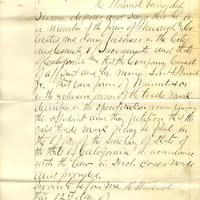 being duly
sworn deposes and says that he is
a member of the firm of
and doing business in the City
and County of Sacramento and State
of California that the Company consist
of affiant and
that said firm of
is the exclusive owner of the trade mark
described in the specification accompanying
this affidavit and they petition that the
said trade mark may be filed in
the office of the Secretary of State of
the State of California in accordance
with the law in such cases made
and provided
Sworn to before me
this 12th day of